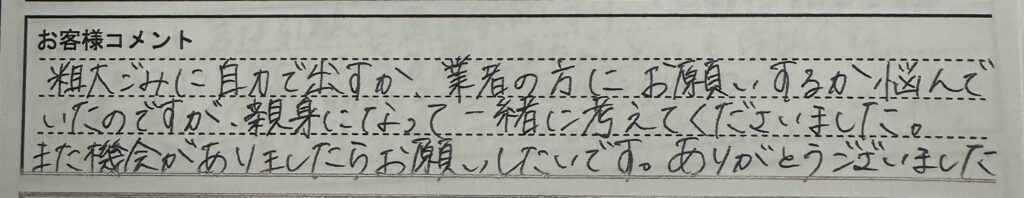 お客様コメント
粗大ごみに自力で出すか、業者の方にお願いするか悩んで
いたのですが、親身になって一緒に考えてくださいました。
また機会がありましたらお願いしたいです。ありがとうございました